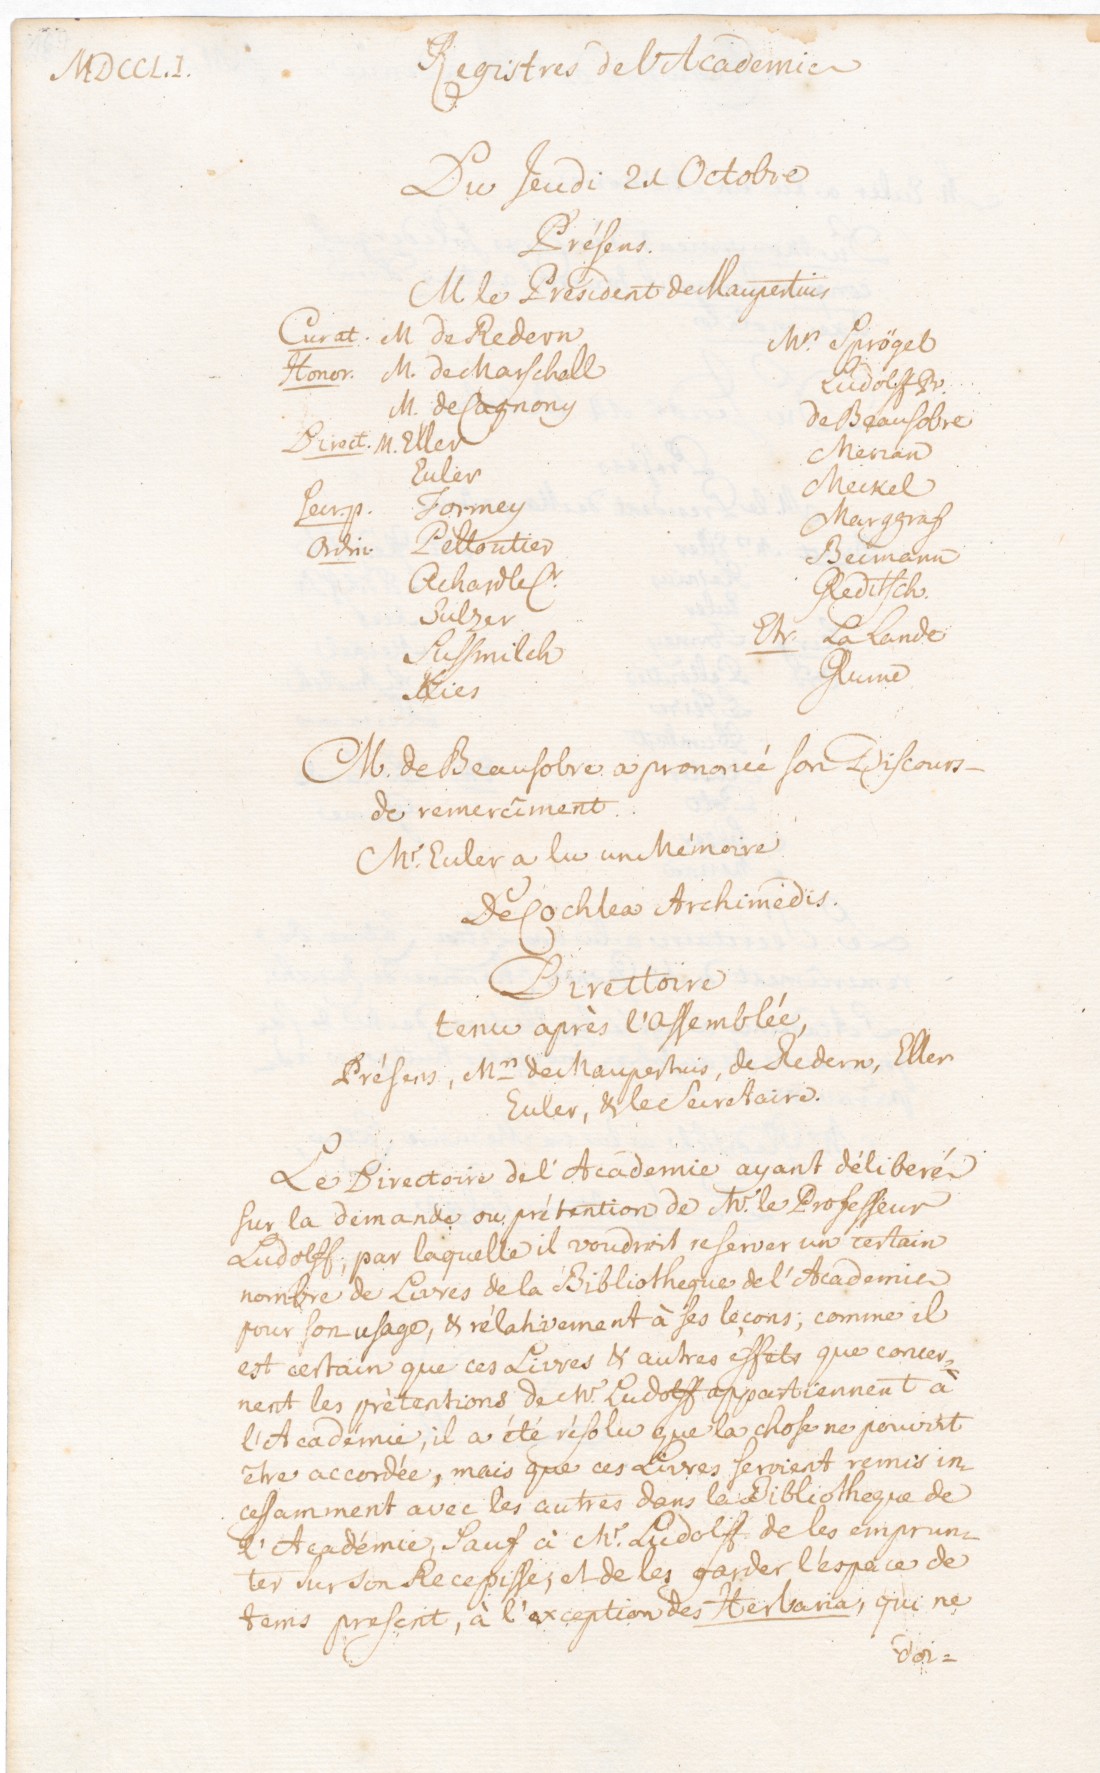 MDCCLI.
Registres de l'Academie
Du Jeudi 21 Octobre
Présens.
M le Président de Maupertuis
Curat. M de Redern
Honor. M. de Marschall
M. de Cagnony
Direct. M. Eller
Euler
Secr. p. Formey
Ordin. Pelloutier
Achard le Cr
Sulzer
Sussmilch
Kies
Mrs Sprögel
Ludolff Pr.
de Beausobre
Merian
Meckel
Marggraf
Becmann
Gleditsch.
Etr. La Lande
Glume
M. de Beausobre a prononcé son Discours
de remerciment.
Mr. Euler a lu un Mémoire
De Cochlea Archimedis.
Directoire
tenu après l'assemblée,
Présens, Mrs de Maupertuis, de Redern, Eller
Euler, & le Secretaire.
Le Directoire de l'Académie ayant déliberé
sur la demande ou prétention de Mr. le Professeur
Ludolff, par laquelle il voudroit reserver un certain
nombre de Livres de la Bibliotheque de l'Academie
pour son usage, & rélativement à ses leçons; comme il
est certain que ces Livres & autres effets que concer=
nent les prétentions de Mr Ludolff appartiennent à
l'Académie, il a été résolu que la chose ne pouvoit
etre accordée, mais que ces Livres seroient remis in=
cessamment avec les autres dans la Bibliotheque de
l'Académie, Sauf à Mr. Ludolff de les emprun=
ter sur son Recepisse, et de les garder l'espace de
tems present, à l'exception des Herbaria, qui ne
doi=